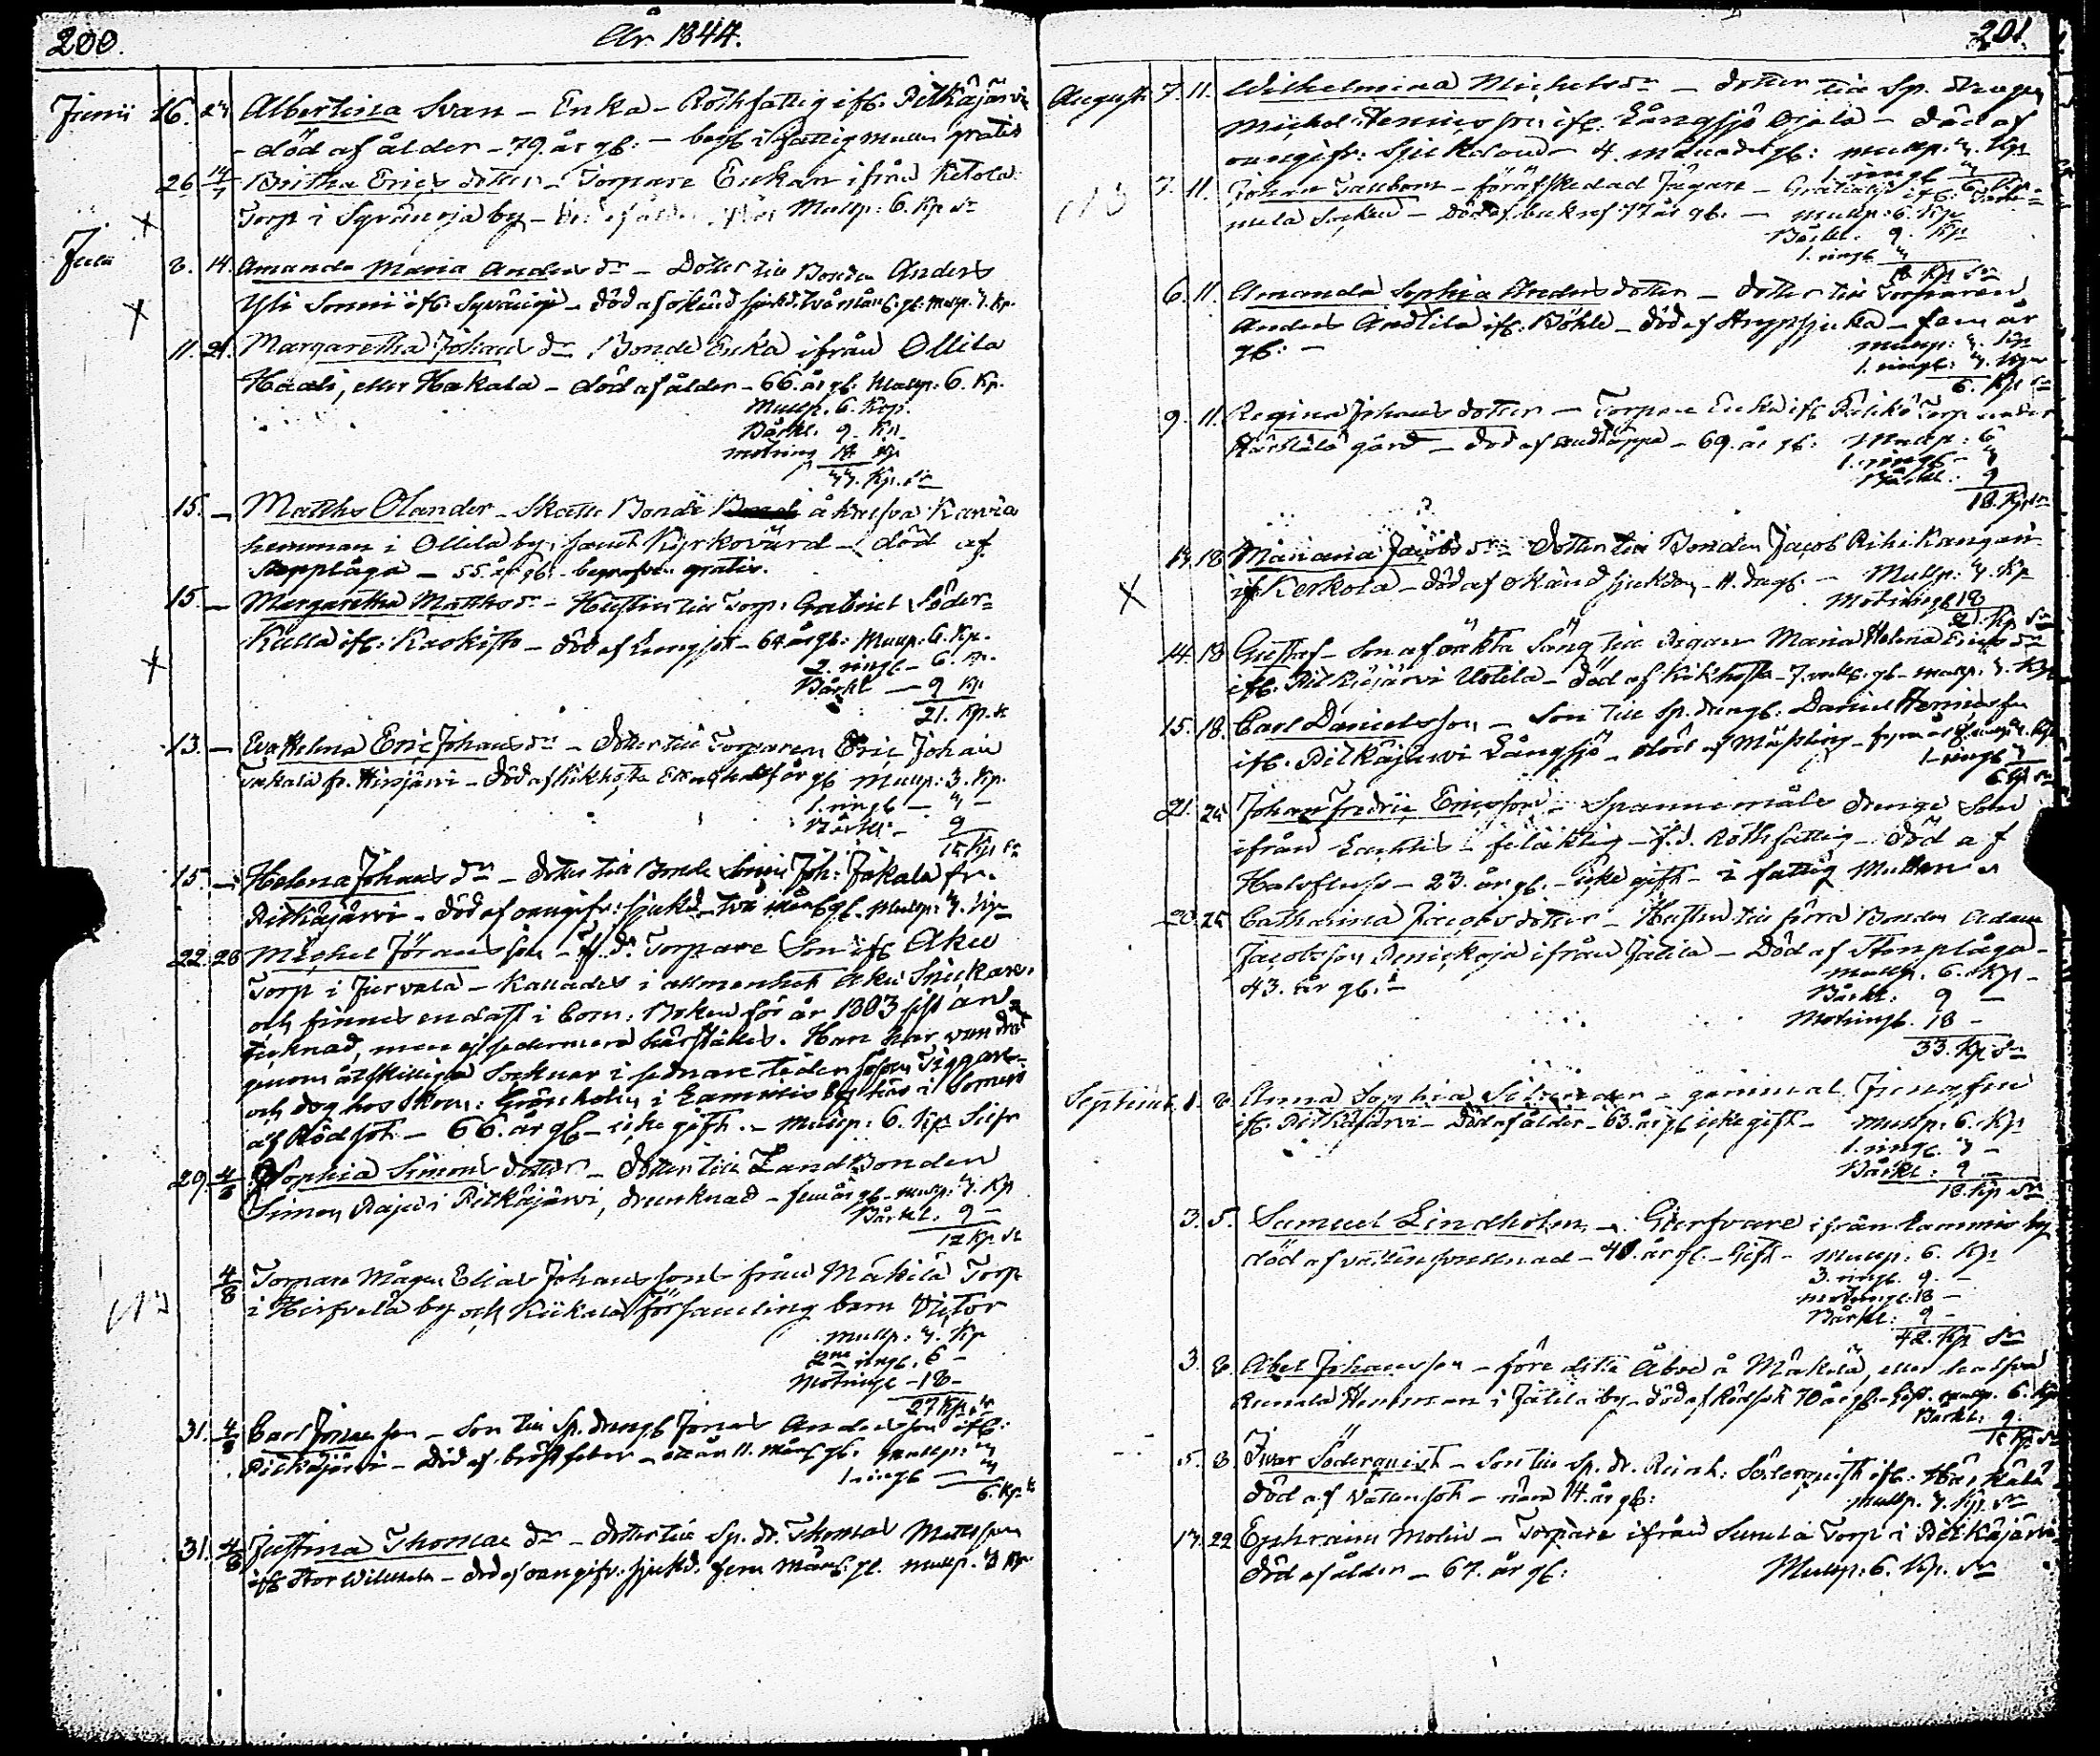 200. År 1844.
Junii 16. 23 Albertina Svan - Enka - Rothfattig ifr. Pitkäjärvi
- död af ålder - 79. år gl: - begr i fattig mullen gratis
26 14/7 Britha Erics dotter - Torpare Enkan ifrån Ketola
Torp i Syvänoja by - Mullp: 6. Kp Sr
Julii 8. 14. Amanda Maria Anders dr - Dotter till Bonden Anders
Yli Sonni ifr. Syvänoja - död af okänd sjukd. två mån. gl. Mullp. 3. Kp.
11. 21. Margaretha Johans dr Bonde Enka ifrån Ollila
Haali, eller Hakala - död af ålder - 66. år gl. Mullp: 6. Kp.
Mullp. 6. Kop.
Bårkl. 9. Kp.
Motring 18 Kp
33. Kp. Sr
15. - Matths Olander - Skatte Bonde å Kavia
hemman i Ollila by, samt Kyrkovärd - död af
Stenplåga - 55. år gl. - begrafven gratis.
15 - Margaretha Matths dr - Hustru till Torp. Gabriel Söder=
Kulla ifr: Kaskisto - död af Lungsot - 64 år gl: Mullp: 6. Kp.
2. ringl - 6. Kp.
Bårkl - 9 Kp.
21. Kp. Sr
13. - Eva Helena Eric Johans dr - Dotter till Torparen Eric Johan
fr. Hirsjärvi - död af kikhosta Ett och half år gl Mullp: 3. Kp.
1. ringl - 3 -
Bårkl: - 9
15 Kp Sr
15. - Helena Johans dr - dotter till Bonde Joh: Jakala fr.
Pitkäjärvi - död af oangifr: sjukd. två mån gl. Mullp: 3. Kp
22. 28 Michel Jöransson - f. d. Torpare Son ifr Aku
Torp i Jurvala - Kallades i allmenhet Aku Snickare,
och finnes endast i Com: Boken för år 1803 sist an=
teknad, men ej sedermera härstädes. Han har vandrat
genom åtskilliga Soknar i sednare tider såsom Tiggare
och dog hos Skom: Grönholm i Lammis by här i Somero
af Rödsot - 66. år gl - icke gift. - Mullp: 6. Kp Silfr
29. 4/8 Sophia Simons dotter - dotter till LandBonden
Simon Raja i Pitkäjärvi, drunknad - fem år gl - mullp: 3. Kp
Bårkl. 9 -
12 Kp Sr
4/8 Torpare Mågen Elias Johanssons från Mäkilä Torp
i Hirsvelä by och Kiikala församling barn Victor
Mullp: 3. Kp
2ne ringl. 6 -
Motringl - 18 -
27 Kp. Sr
31. 4/8 Carl Jonasson - Son till Sp. drengl Jonas Andersson ifr:
Pitkäjärvi - Död af bröstfeber - ett år 11. mån gl. mullp: 3
1. ringl - 3
6. Kp. Sr
31. 4/8 Justina Thomae dr - dotter till Sp. dr. Thomas Mattsson
ifr Stor Wiluksela - död af oangifr. sjukd. fem mån. gl. mullp. 3 Kp.
201.
Augusti 7. 11. Wilhelmina Michels dr - dotter till Sp. drengen
Michel Henricsson ifr. Långsjö - död af
oangifr: sjukdom - 4. månad. gl: mullp. 3. Kp
1. ringl - 3
6. Kp
7. 11. Johan Tallbom - föräfskedad Jägare - Gratialist ifr:
mela Socken - Död af 77 år gl. - mullp: 6. Kp
Bårkl. 9. Kp
1. ringl 3
18 Kp Sr
6. 11. Amanda Sophia Anders dotter - dotter till Torparen
Anders Andtila ifr: Böhle - död af Strypsjuka - fem år
gl: - mullp: 3. Kp
1. ringl: 3. Kp
6. Kp Sr
9. 11. Regina Johans dotter - Torpare Enka ifr Torp under
Härkälä gård - död af andtäppa - 69. år gl: Mullp: 6
1. ringl - 3
Bårkl: 9
18. Kp Sr
14. 18 Mariana Jacobs dr - Dotter till Bonden Jacob Rihikangan
ifr Kerkola - död af okänd sjukdom - 11. dag. - Mullp: 3. Kp
Motringl 18
21. Kp Sr
14. 18 Gustaf - Son af oäkta Säng till Pigan Maria Helena Erics dr
ifr. Pitkäjärvi Uotila - död af Kikhosta - 7. veck. gl - mullp. 3. Kp
15. 18. Carl Danielsson - Son till Sp. drengl: Daniel Henricsson
ifr. Pitkäjärvi Långsjö - död af Mässling - fyra år gl mullp 3. Kp
1. ringl 3
6 Kp Sr
21. 25 Johan Fredric Ericsson - Spannemåls drenge Son
ifrån Lahtis - felaktig - f. d. Rothfattig - död af
Halsfluss - 23. år gl. - icke gift - i fattig Mullen
20. 25 Catharina Jacobs dotter - Hustru till förra Bonden Adam
Jacobsson ifrån Jatila - Död af Stenplåga -
43. år gl. - mullp. 6. Kp -
Bårkl: 9 -
Motringl. 18 -
33. Kp Sr
Septemb. 1. 8. Anna Sophia - gammal Jungfru
ifr. Pitkäjärvi - Död af ålder - 63. år gl icke gift - mullp: 6. Kp
1. ringl. 3 -
Bårkl: 9 -
18. Kp Sr
3. 5. Samuel Lindholm - Garfvare ifrån Lammis by
död af vattensvullnad - 48. år gl. - Gift - mullp: 6. Kp
3. ringl. 9. -
motringl: 18 -
Bårkl: 9 -
42. Kp Sr
3. 8. Abel Johansson - före detta Åboe å Mäkelä, eller halfva
Hemman i Jatila by - död af Rödsot 70 år gl. Gift. mullp. 6. Kp
Bårkl: 9.
15 Kp Sr
5. 8. Ivar Söderqvist - Son till Sp. dr. Reinh: Söderqvist ifr. Härkälä
Död af Vattusot - nära 14. år gl: mullp. 3. Kp. Sr
17. 22 Ephraim Molin - Torpare ifrån Torp i Pitkäjärvi
död af ålder - 67. år gl: Mullp: 6. Kp. Sr